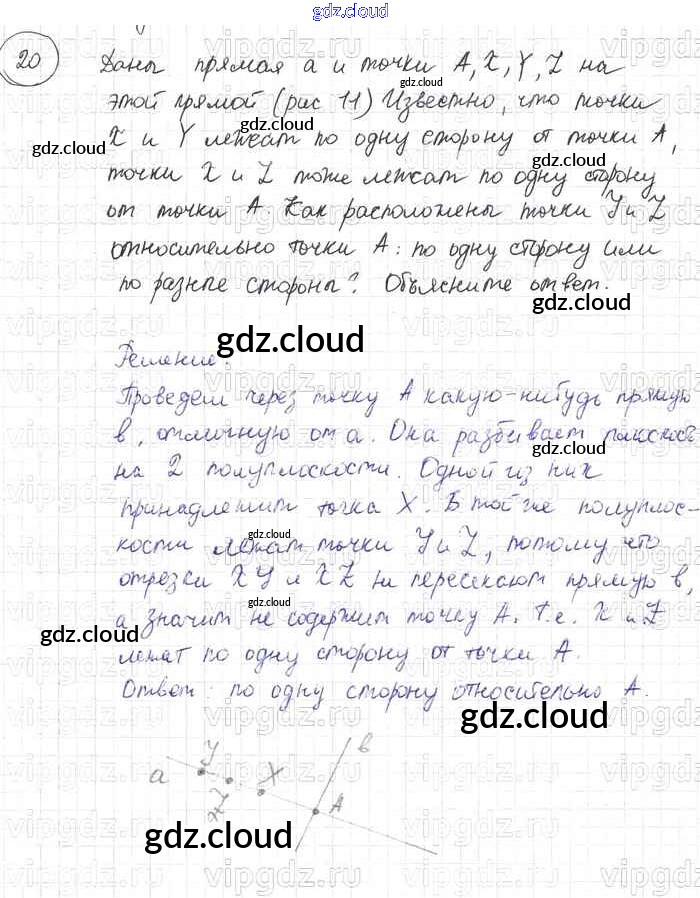 gdz.cloud
20 Даны прямая а и точки A, X, Y, Z на
gdz.cloud
этой прямой (рис 11) Известно, что точки
gdz.cloud
X и Y лежат по одну сторону от точки A,
gdz.cloud
точки X и Z тоже лежат по одну сторону
gdz.cloud
от точки A. Как расположены точки Y и Z
относительно точки A: по одну сторону или
по разные стороны? Объясните ответ.
gdz.cloud
gdz.cloud
Решение:
Проведем через точку A какую-нибудь прямую
в, отличную от а. Она разбивает плоскость
gdz.cloud
на 2 полуплоскости. Одной из них
принадлежит точка X. В той же полуплос-
gdz.cloud
кости лежат точки Y и Z, потому что
отрезки XY и XZ не пересекают прямую в,
gdz.cloud
а значит не содержит точку A. т.е. X и Z
gdz.cloud
лежат по одну сторону от точки A.
Ответ: по одну сторону относительно A.
gdz.cloud
в
Y
а
X
Z
A
gdz.cloud
gdz.cloud